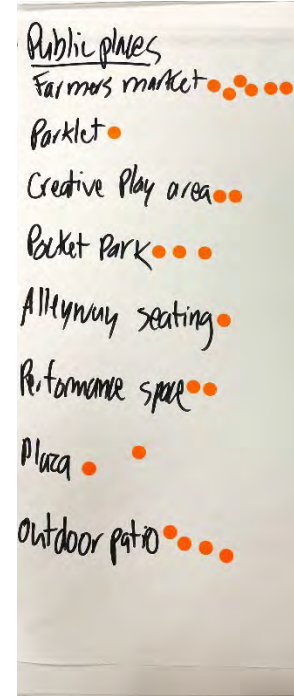 Public places
Farmers market
Parklet
Creative Play area
Pocket Park
Alleyway seating
Performance space
Plaza
outdoor patio